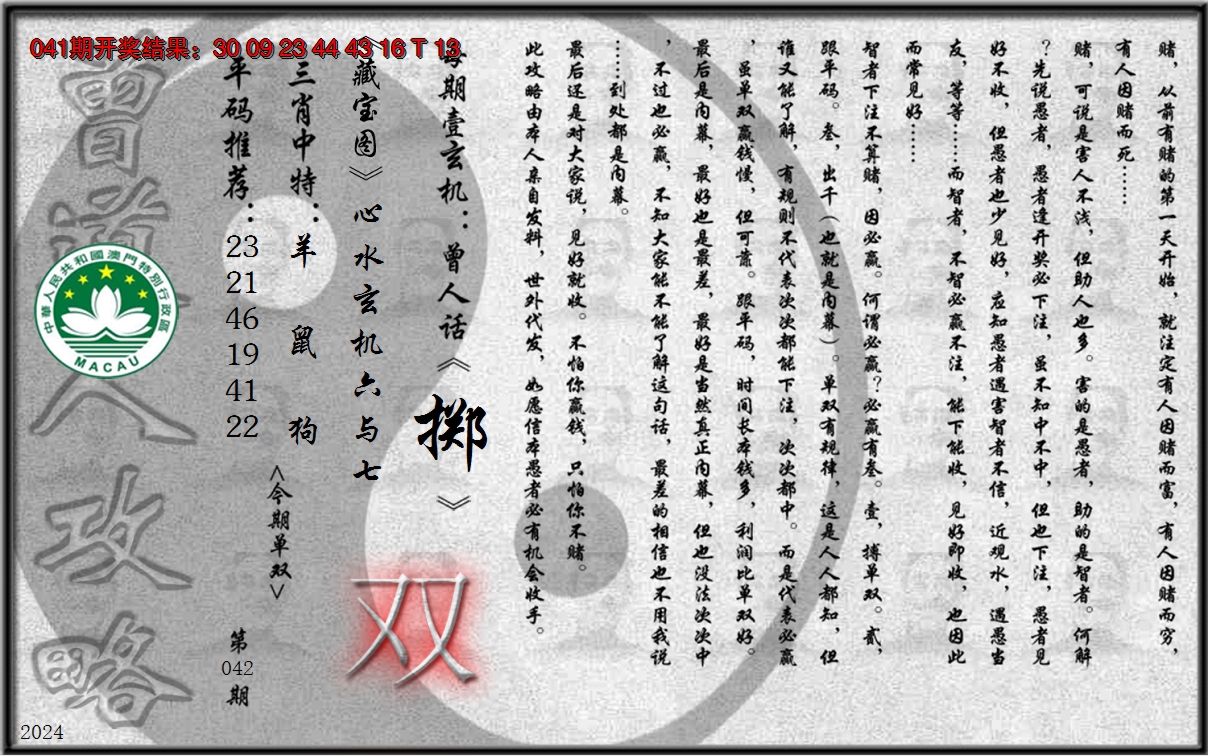 041期开奖结果：30 09 23 44 43 16 T 13
赌，从前有赌的第一天开始，就注定有人因赌而富，有人因赌而穷，
有人因赌而死……
赌，可说是害人不浅，但助人也多。害的是愚者，助的是智者。何解
？先说愚者，愚者逢开奖必下注，虽不知中不中，但也下注，愚者见
好不收，但愚者也少见好，应知愚者遇害智者不信，近观水，遇愚当
友，等等……而智者，不智必赢不注，能下能收，见好即收，也因此
而常见好……
智者下注不算赌，因必赢。何谓必赢？必赢有叁。壹，搏单双。贰，
跟平码。叁，出千（也就是内幕）。单双有规律，这是人人都知，但
谁又能了解，有规则不代表次次都能下注，次次都中。而是代表必赢
，虽单双赢钱慢，但可靠。跟平码，时间长本钱多，利润比单双好。
最后是内幕，最好也是最差，最好是当然真正内幕，但也没法次次中
，不过也必赢，不知大家能不能了解这句话，最差的相信也不用我说
……到处都是内幕。
最后还是对大家说，见好就收。不怕你赢钱，只怕你不赌。
此攻略由本人亲自发料，世外代发，如愿信本愚者必有机会收手。
每期壹玄机：曾人话《掷》
《藏宝图》心水玄机六与七
双
三肖中特：羊 鼠 狗
<今期单双>
平码推荐：23 21 46 19 41 22
第042期
曾道人攻略
中華人民共和國澳門特別行政區
MACAU
2024